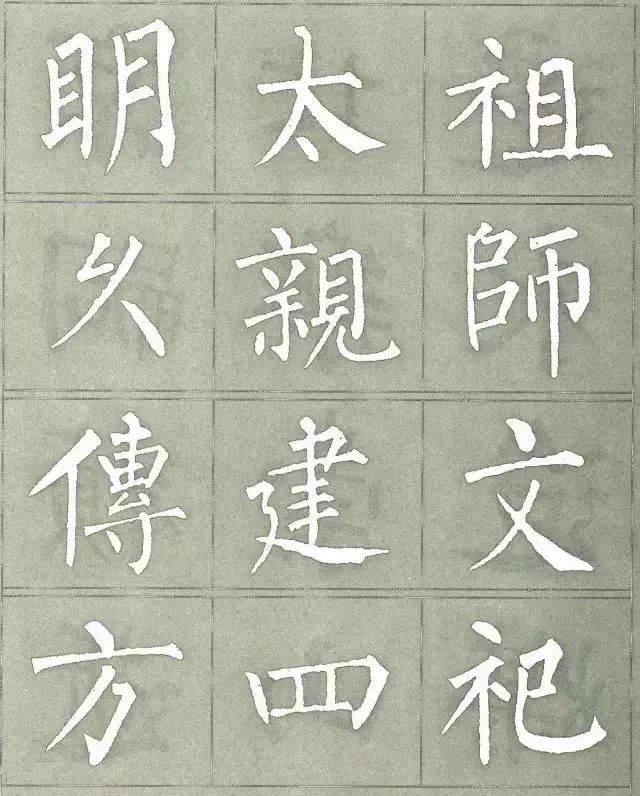 祖師文祀
太親建四
明久傳方